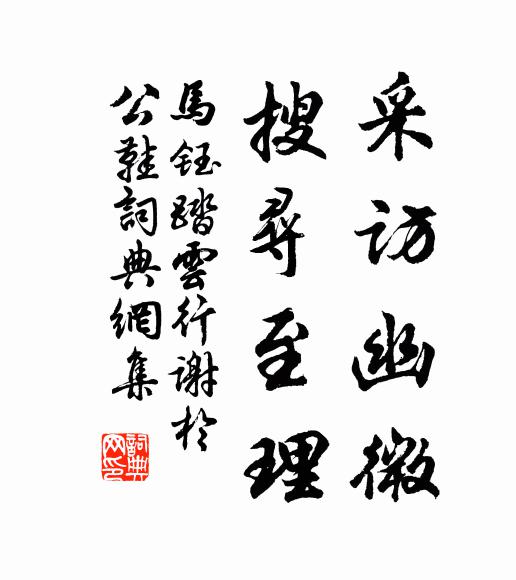 采访幽微
搜尋至理
馬鈺踏雲行謝於
公鞋詞典網集
詞典
网印